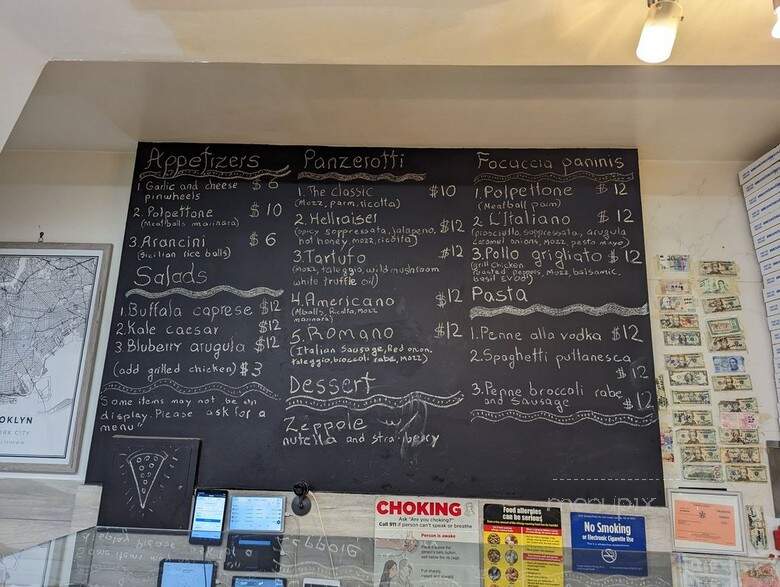 Appetizers
1 Garlic and cheese $6
pinwheels
2. Polpettone $10
(Meatballs marinara)
3. Arancini $6
(Sicilian rice balls)
Salads
1. Buffala caprese $12
2. Kale caesar $12
3. Bluberry arugula $12
(add grilled chicken) $3
Some items may not be on
display. Please ask for a
menu
Panzerotti
1. The classic $10
(Mozz, parm, ricotta)
2. Hellraiser $12
(spicy soppressata, jalapeno,
hot honey, mozz, ricotta)
3. Tartufo $12
(mozz, taleggio, wild mushroom
white truffle oil)
4. Americano $12
(Mballs, Ricotta, mozz
marinara)
5. Romano $12
(Italian Sausage, Red onion,
taleggio, broccoli rabe, mozz)
Dessert
Zeppole
nutella and strawberry
Focuccia paninis
1. Polpettone $12
(Meatball parm)
2. L'Italiano $12
(prosciutto, soppressata, arugula
caramel onions, mozz, pesto mayo)
3. Pollo grigliato $12
(grill chicken
roasted peppers, mozz, balsamic,
basil EVOO)
Pasta
1. Penne alla vodka $12
2. Spaghetti puttanesca
$12
3. Penne broccoli rabe
and sausage $12
OOKLYN
RK CITY
CHOKING
Ask "Are you choking?"
Call 911 if person can't speak or breathe
Person is awake
Food allergies
can be serious
No Smoking
or Electronic Cigarette Use
menupix